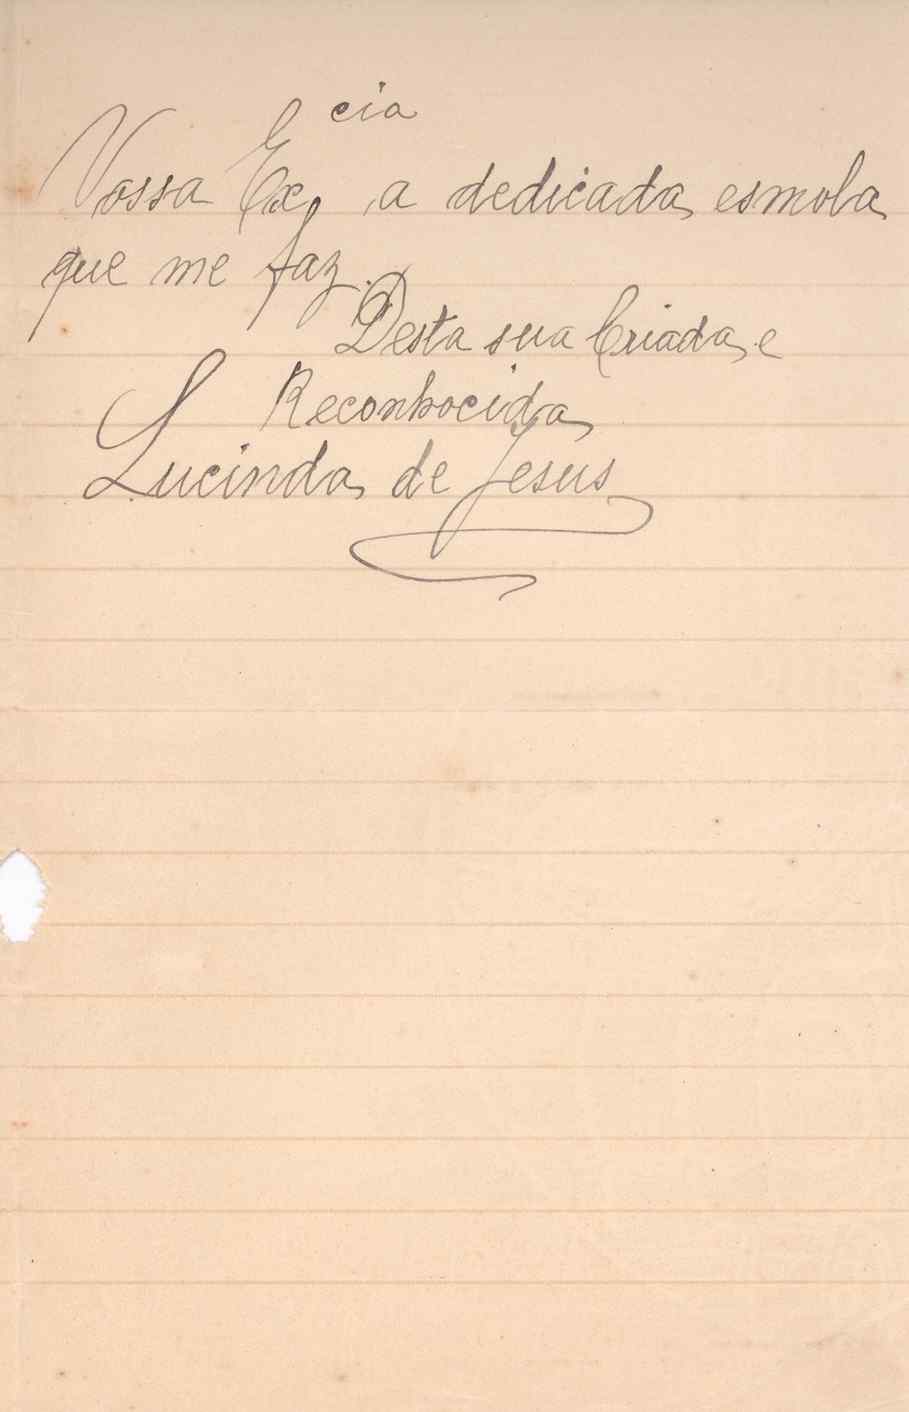 Vossa Ex.cia a dedicada esmola
que me faz.
Desta sua Criada e
Reconhocida
Lucinda de Jesus